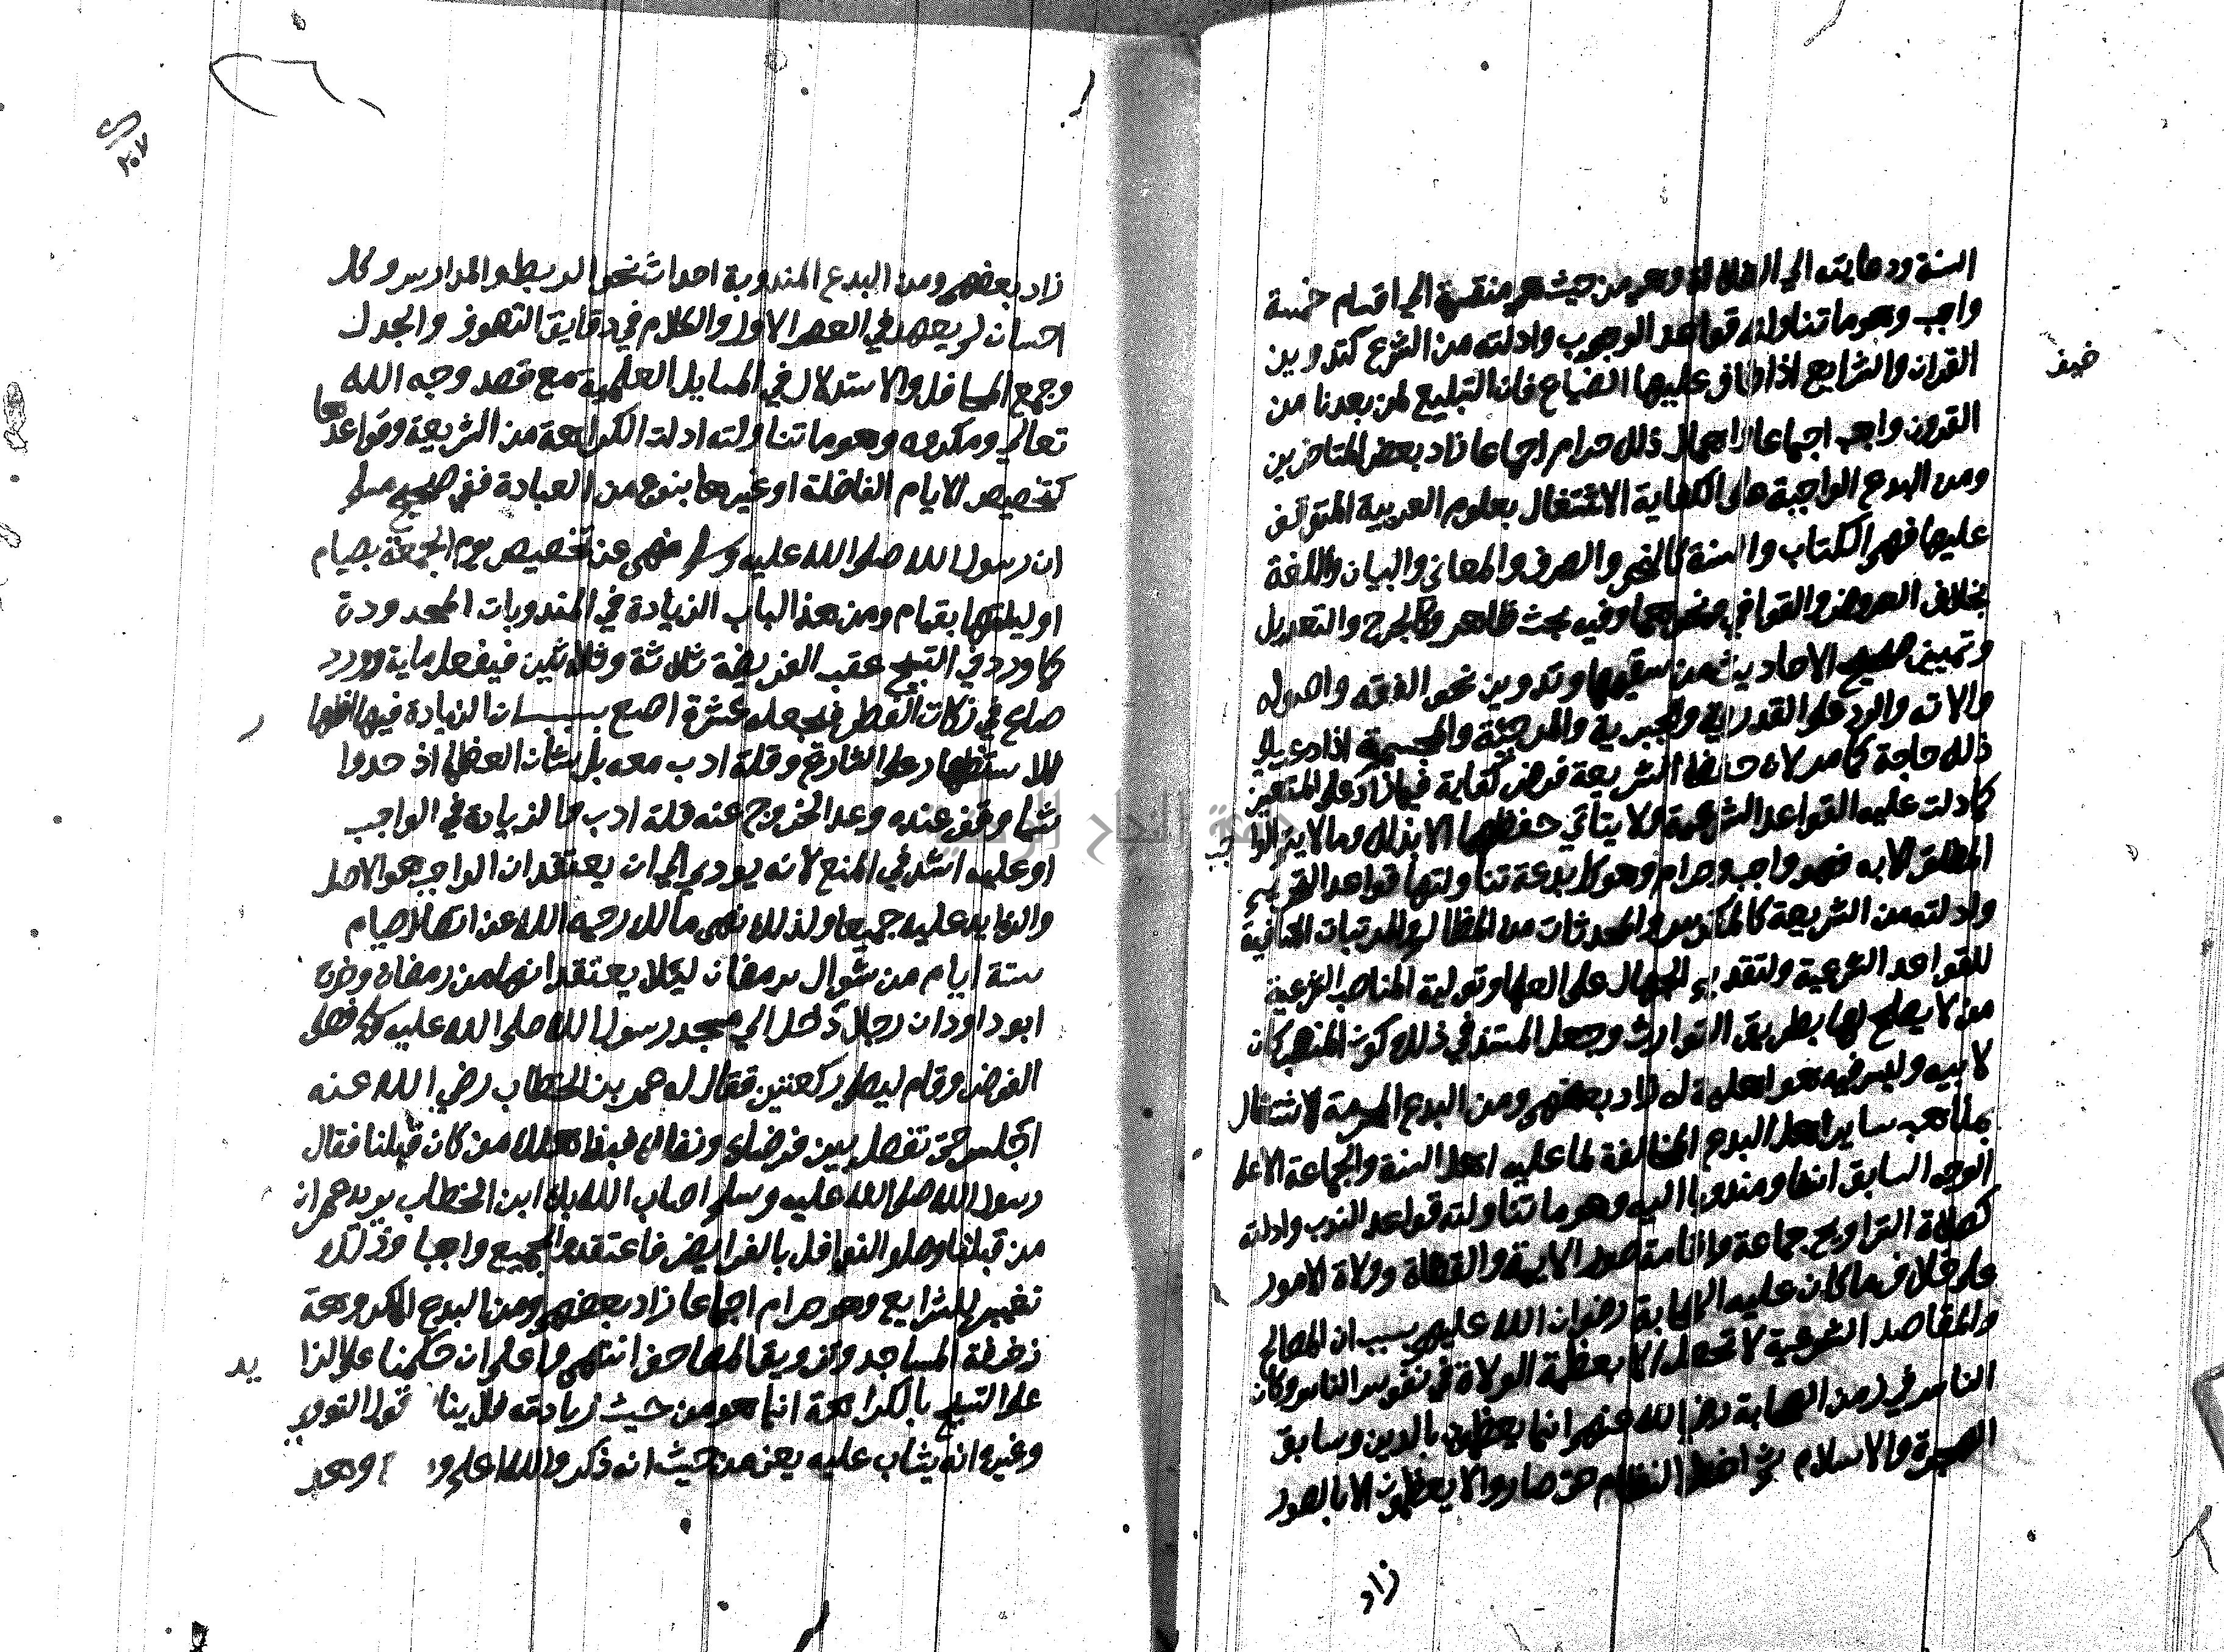 السنة ودعايته الي الضلالة وهي من حيث هي منقسمة الي اقسام خمسة
واجب وهو ما تناولته قواعد الوجوب وادلته من الشرع كتدوين
القران والشرايع اذا خاف عليها الضياع فان التبليغ لمن بعدنا من
خيف
القرون واجب اجماعا واهمال ذلك حرام اجماعا زاد بعض المتاخرين
ومن البدع الواجبة على الكفاية الاشتغال بعلوم العربية المتوقف
عليها فهم الكتاب والسنة كالنحو والصرف والمعاني والبيان واللغة
بخلاف العروض والقوافي ونحوهما وفيه بحث ظاهر وكالجرح والتعديل
وتمييز صحيح الاحاديث من سقيمها وتدوين نحو الفقه واصوله
والاته والرد على القدرية والجبرية والمرجئة والمجسمة اذا دعي الي
ذلك حاجة كما مر لان حفظ الشريعة فرض كفاية فيما زاد على المتعين
كما دلت عليه القواعد الشرعية ولا يتأتي حفظها الا بذلك وما لا يتم الواجب
المطلق الا به فهو واجب وحرام وهو كل بدعة تناولتها قواعد التحريم
وادلته من الشريعة كالمكوس والمحدثات من المظالم والمرتبات المنافية
للقواعد الشرعية ولتقديم الجهال على العلما وتولية المناصب الشرعية
من لا يصلح لها بطريق التوارث وجعل المستند في ذلك كون المنصب كان
لابيه وليس فيه هو اهلية له زاد بعضهم ومن البدع المحرمة الاشتغال
بمذاهب ساير اهل البدع المخالفة لما عليه اهل السنة والجماعة الا على
الوجه السابق انفا ومندوبا اليه وهو ما تناولته قواعد الندب وادلته
كصلاة التراويح جماعة واقامة صور الايمة والقضاة وولاة الامور
على خلاف ما كان عليه الصحابة رضوان الله عليهم بسبب ان المصالح
والمقاصد الشرعية لا تحصل الا بعظمة الولاة في نفوس الناس وكان
الناس في زمن الصحابة رضي الله عنهم انما يعظمون بالدين وسابق
الهجرة والاسلام ثم اختل النظام حتى صاروا لا يعظمون الا بالصور
زاد
زاد بعضهم ومن البدع المندوبة احداث نحو الربط والمدارس وكل
احسان لم يعهد في العصر الاول والكلام في دقايق التصوف والجدل
وجمع المحافل والاستدلال في المسايل العلمية مع قصد وجه الله
تعالي ومكروه وهو ما تناولته ادلت الكراهة من الشريعة وقواعدها
كتخصيص الايام الفاضلة او غيرها بنوع من العبادة ففي صحيح مسلم
ان رسول الله صلى الله عليه وسلم نهى عن تخصيص يوم الجمعة بصيام
او ليلتها بقيام ومن هذا الباب الزيادة في المندوبات المحدودة
كما ورد في التسبيح عقب الفريضة ثلاثة وثلاثين فيفعل ماية وورد
صاع في زكات الفطر فيجعله عشرة اصع بسبب ان الزيادة فيها اظهار
للاستظهار على الشارع وقلة ادب معه بل شأن العظما اذ حدوا
شيا وقف عنده وعد الخروج عنه قلة ادب فالزيادة في الواجب
او عليه اشد في المنع لانه يودي الي ان يعتقد ان الواجب هو الاصل
والزايد عليه جميعا ولذلك نهى مالك رحمه الله عن اتصال صيام
ستة ايام من شوال برمضان ليلا يعتقد انها من رمضان وخرج
ابو داود ان رجلا دخل الي مسجد رسول الله صلى الله عليه وسلم فصلى
الفرض وقام ليصلي ركعتين فقال له عمر بن الخطاب رضي الله عنه
اجلس حتى تفصل بين فرضك ونفلك فبهذا هلك من كان قبلنا فقال
رسول الله صلى الله عليه وسلم اصاب الله بك ابن الخطاب يريد عمر ان
من قبلنا وصلوا النوافل بالفرايض فاعتقدوا الجميع واجبا وذلك
تغيير للشرايع وهو حرام اجماعا زاد بعضهم ومن البدع المكروهة
زخرفة المساجد وتزويق المصاحف انتهى واعلم ان حكمنا على الزايد
على التسبيح بالكراهة انما هو من حيث زيادته فلا ينافي قول النووي
وغيره انه يثاب عليه يعني من حيث انه ذكر والله اعلم وهد